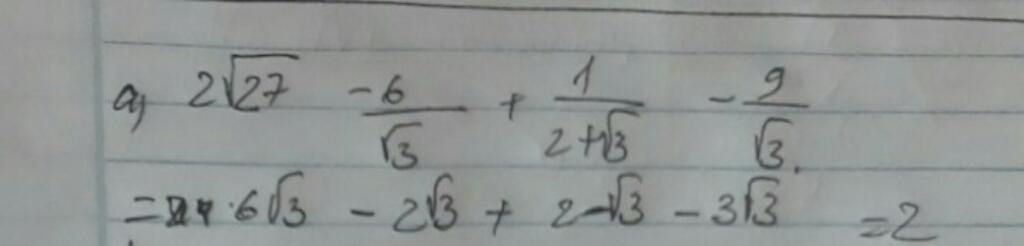 a) 2√27 - 6/√3 + 1/(2+√3) - 9/√3.
= 6√3 - 2√3 + 2-√3 - 3√3 = 2